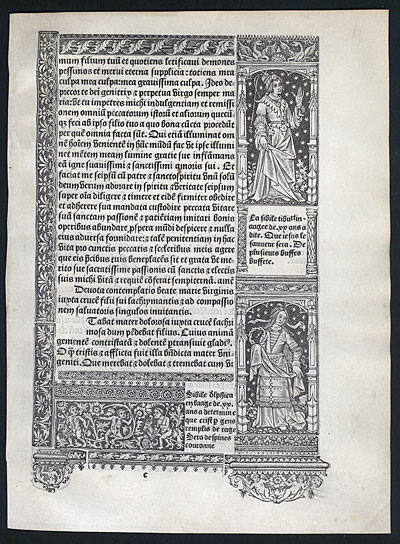 mum filium tuū et quotiens letificaui demones
pessimos et merui eterna supplicia: totiens mea
culpa mea culpa: mea grauissima culpa. Ideo de
precor te dei genitrix & perpetua virgo semper ma
ria: vt tu impetres michi indulgentiam et remissi
onem omniū peccatorum istorū et aliorum quecū
qz feci ab ipso filio tuo a quo bona cūcta procedūt
per quē omnia facta sūt. Qui etiā illuminat om
nē hoīem venientē in hūc mūdū fac vt ipse illumi
net mētem meam lumine gratie sue inflāmans
eā igne suauissimi & sanctissimi amoris sui. Et
faciat me seipsū cū patre & sancto spiritu vnū solū
deum verum adorare in spiritu & veritate seipsum
super oīa diligere & timere et eidē firmiter obedire
et adherere sua mandata custodire peccata vitare
suā sanctam passionē & patiētiam imitari bonis
operibus abundare, pspera mūdi despicere & nulla
eius aduersa formidare: & talē penitentiam in hac
vita pro cunctis peccatis & sceleribus meis agere
que eis precibus tuis beneplacēs sit et grata vt me
rito sue sacratissime passionis cū sanctis & electis
suis michi vitā & requiē cōferat sempiternā. amē
Deuota contemplatio beate marie virginis
iuxta crucē filii sui lachrymantis & ad compassio
nem saluatoris singulos inuitantis.
Tabat mater dolorosa iuxta crucē lachry
mosa dum pēdebat filius. Cuius animā
gementē contristatā & dolentē pertransiuit gladiꝰ.
O qz tristis & afflicta fuit illa būdicta mater vni
geniti. Que merebat & dolebat & tremebat cum vi
La sibile tiburtin-
en aage de .xx. ans a
dite. Que iesus le
sauueur sera. De
plusieurs buffes
buffete.
Sibile delphica
en laage de .xx.
ans a determine
que crist p gens
remplis de rage
Sera despines
couronne
c